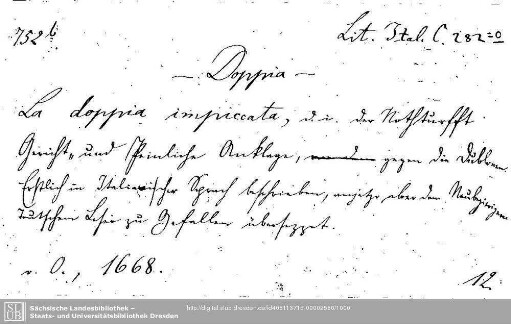 752 b
Lit. Ital. C. 282=0
— Doppia —
La doppia impiccata, d. i. der Nothturfft
Gericht, und Peinliche Anklage, gegen die Dublonen.
Erstlich in Italienischer Sprach beschrieben, anjetzo aber dem Neubegierigen
Teutschen Leser zu Gefallen übersezzet.
v. O., 1668.
12.
SLUB
Sächsische Landesbibliothek –
Staats- und Universitätsbibliothek Dresden